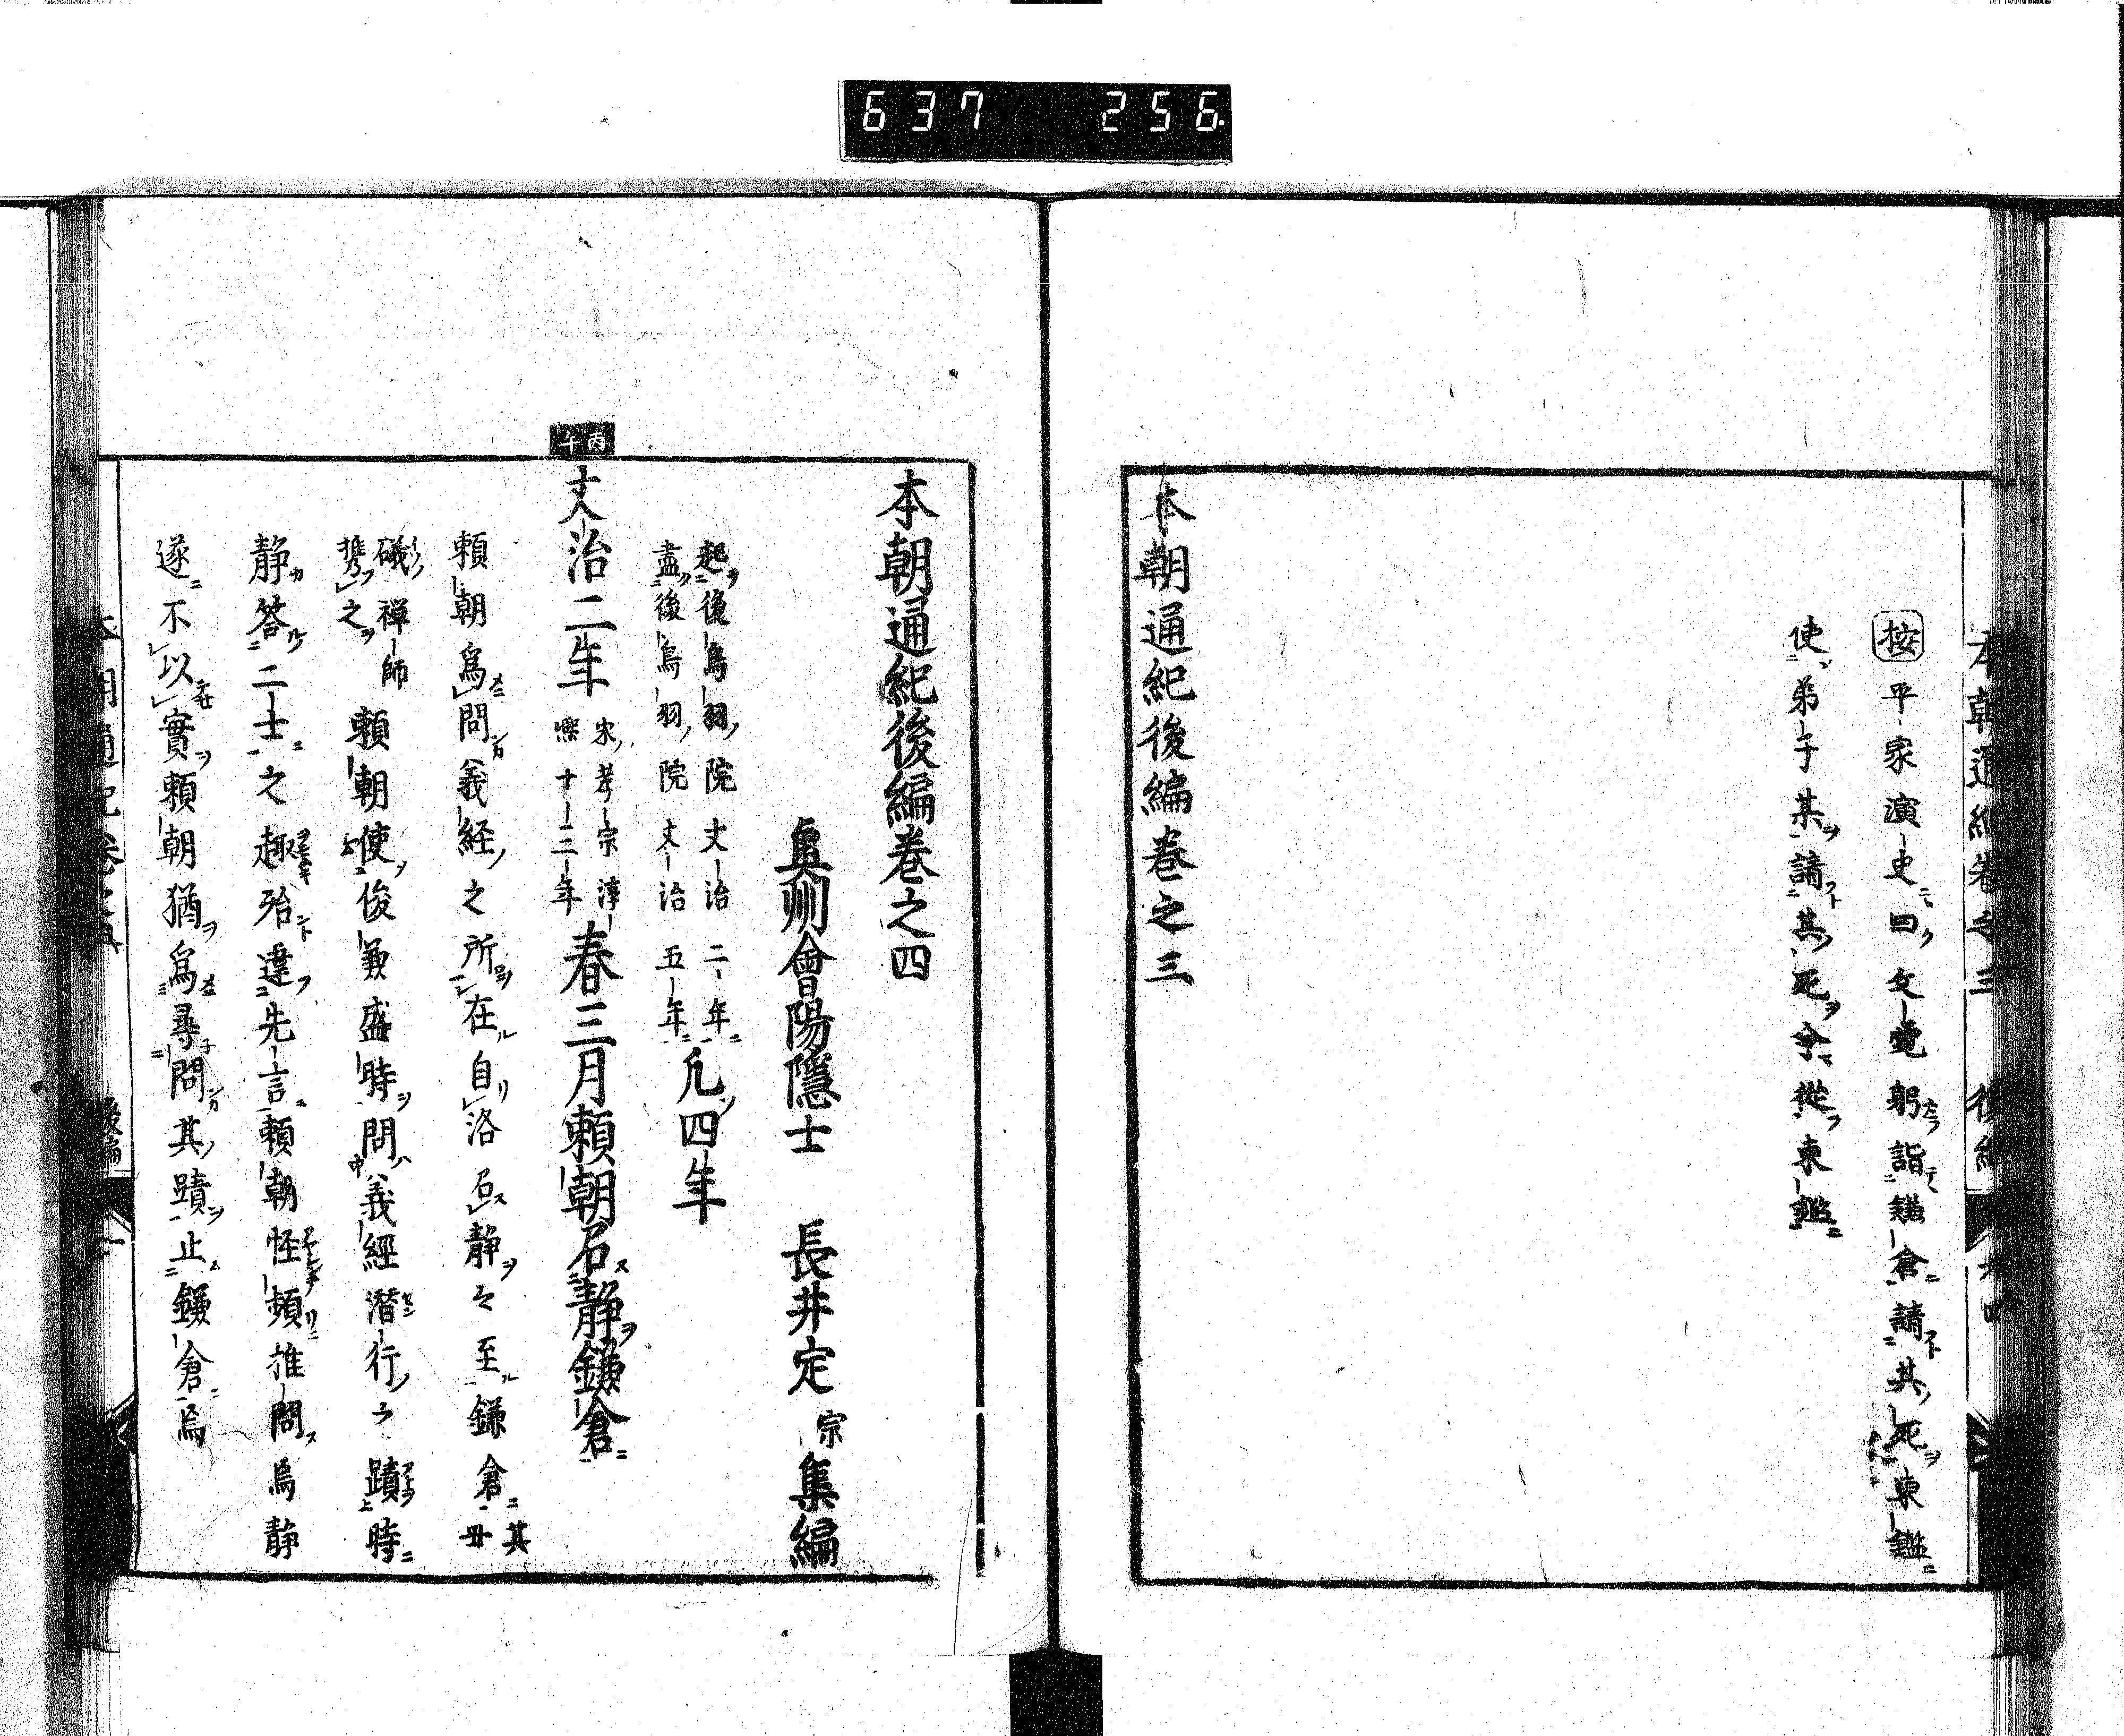 637 256
按平家演史曰文覺躬詣鎌倉請其死東鑑
使弟子某請其死今從東鑑
本朝通紀後編卷之三
本朝通紀後編卷之四
奥州會陽隱士 長井定宗集編
起後鳥羽院文治二年
盡後鳥羽院文治五年
凡四年
丙午
文治二年
宋孝宗淳
熈十三年
春三月頼朝召静鎌倉
頼朝爲問義経之所在自洛召静々至鎌倉其母
礒禪師
携之
頼朝使俊兼盛時問義經潜行之蹟時
静答二士之趣殆違先言頼朝怪頻推問焉静
遂不以實頼朝猶爲尋問其蹟止鎌倉焉